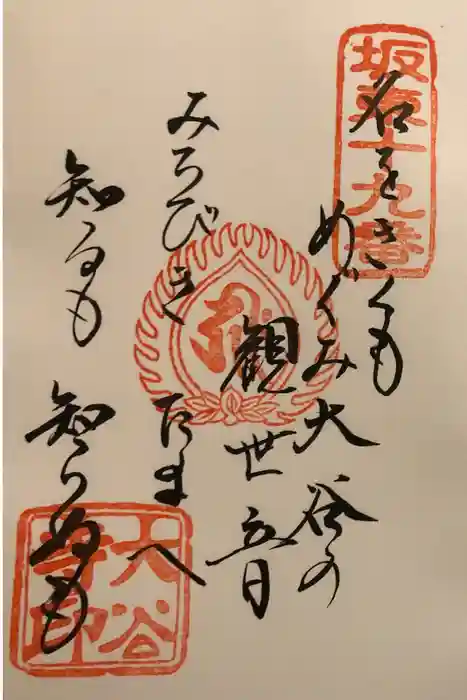 坂東十九番
名をきくも
めぐみ大谷の
観世音
みちびきたまへ
知るも知らぬも
大谷
寺印